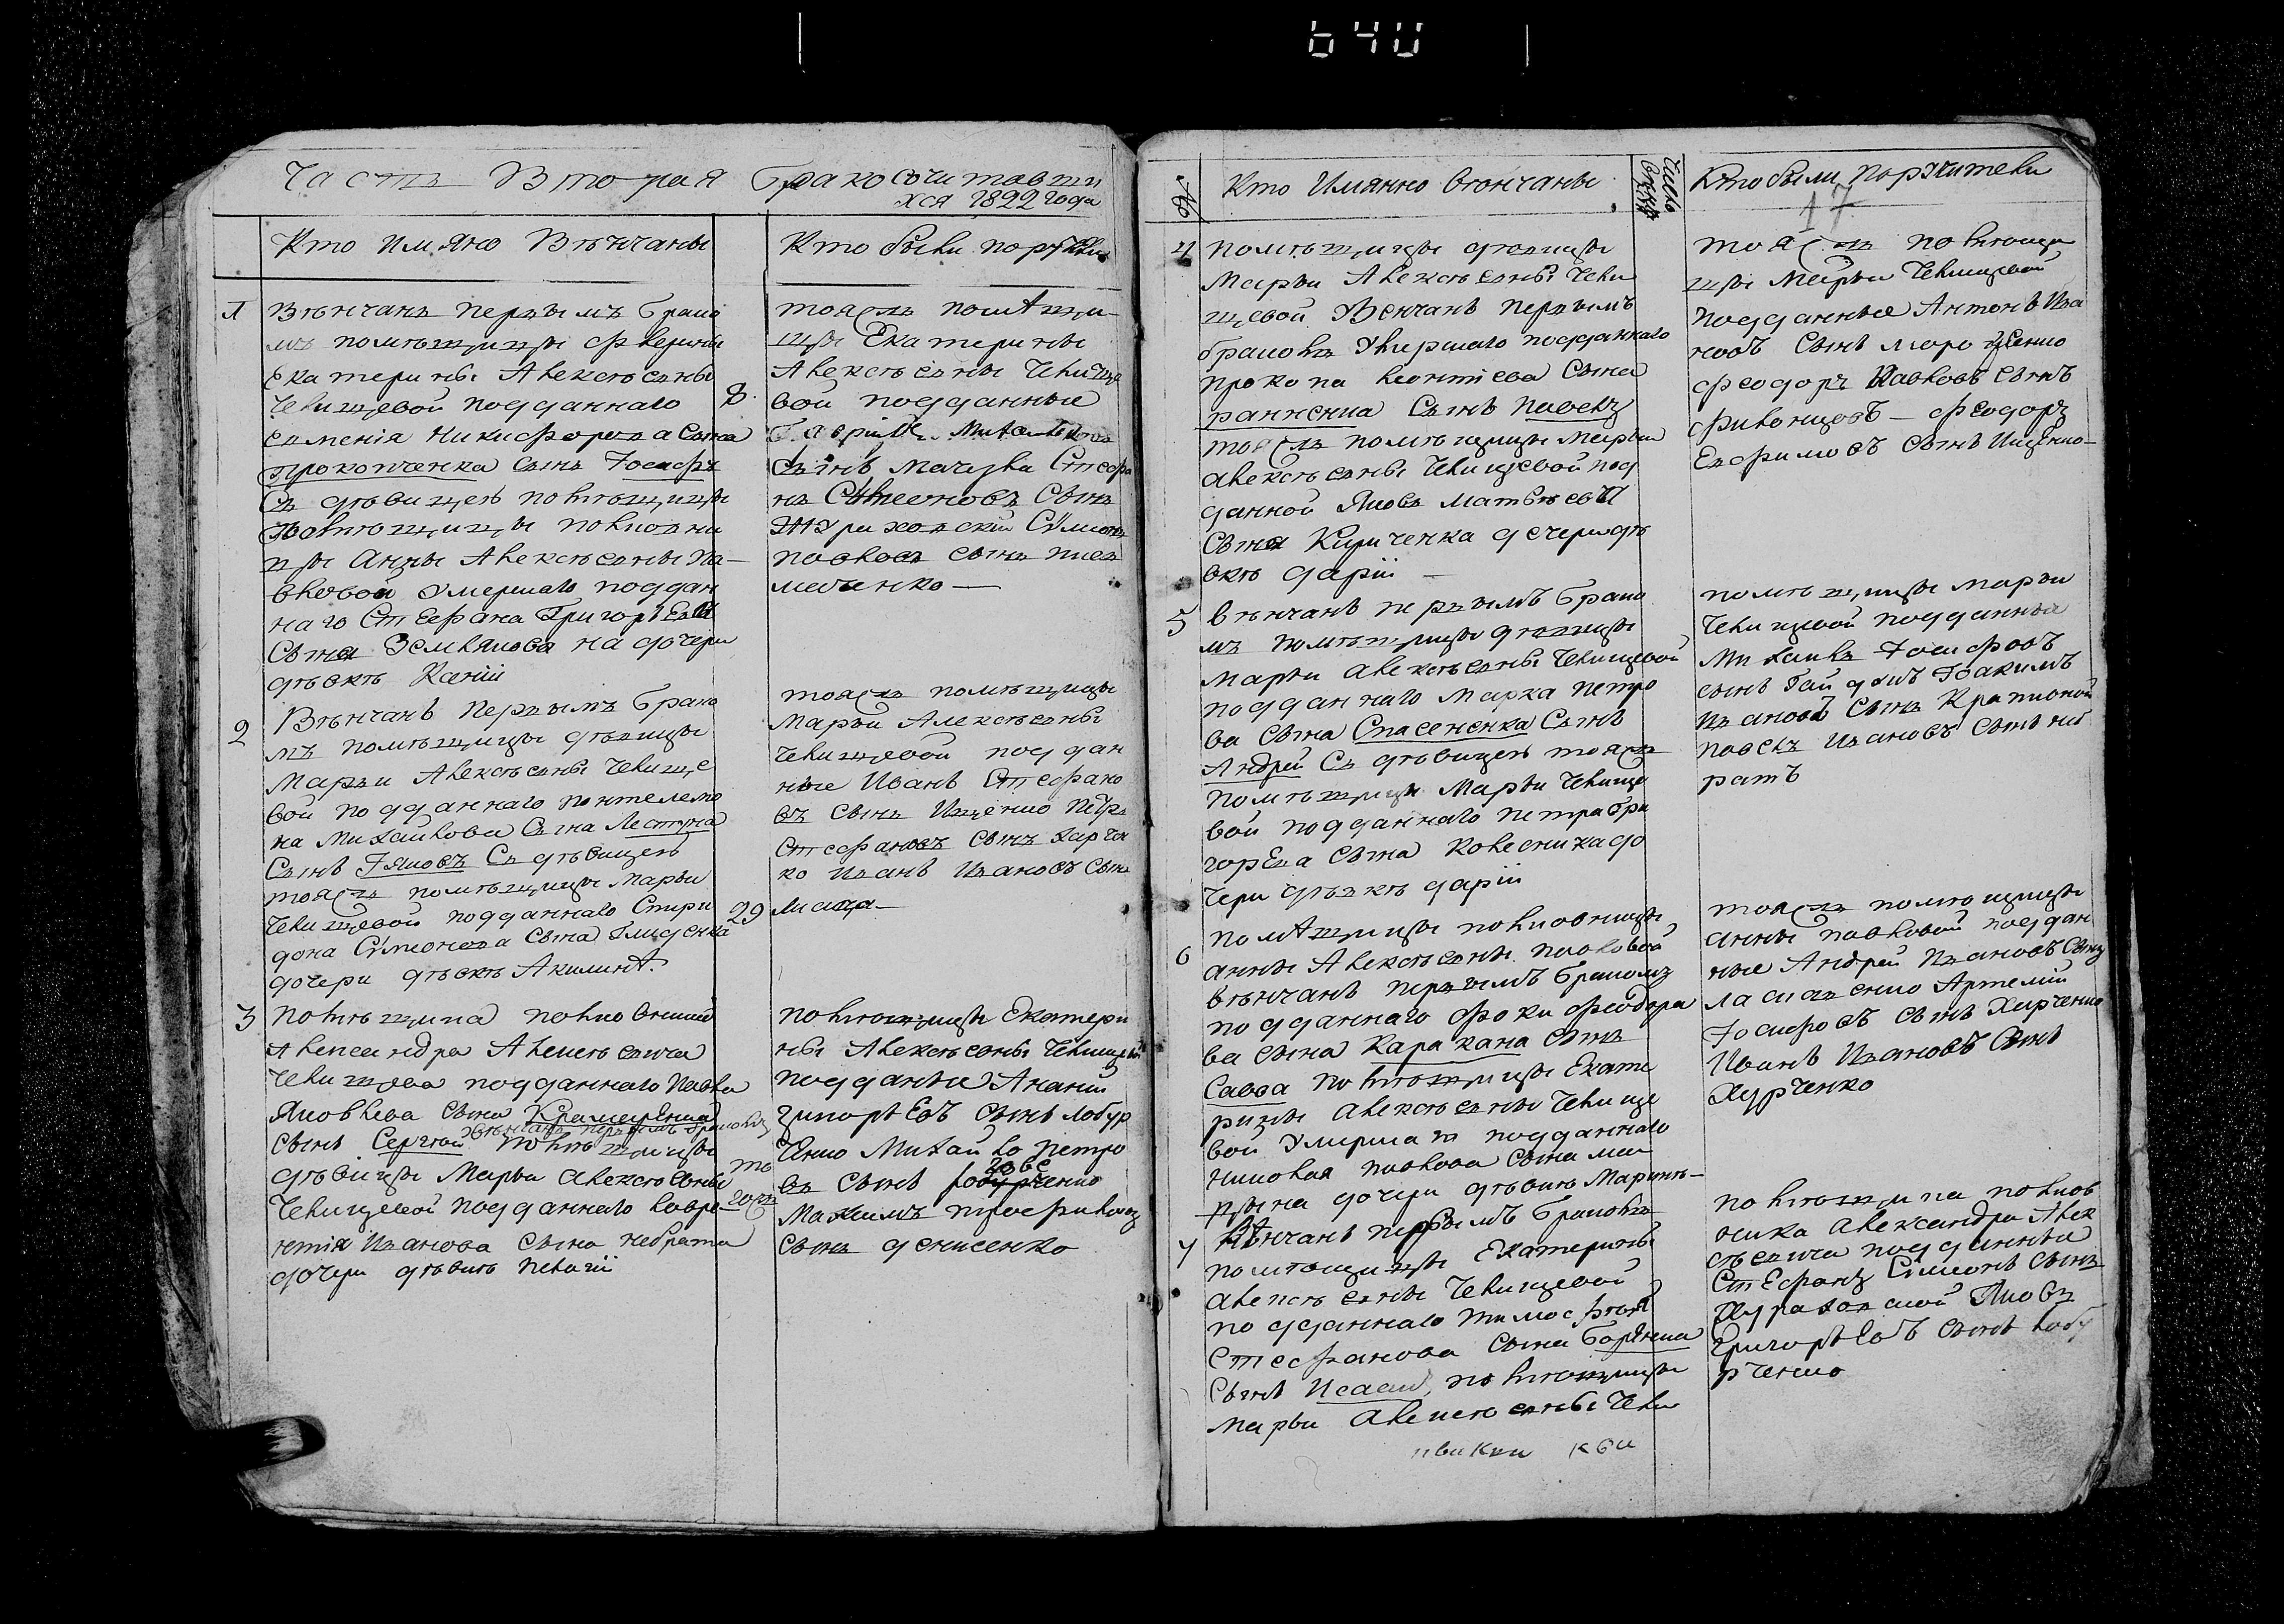 640
Часть Вторая Бракосочитавши
хся 1822 года
Кто имяно Вѣнчаны
Кто были поручи
1
Вѣнчанъ первымъ брако
мъ помѣщицы
Екатерины Алексѣевны
Чепищевой подданнаго
Евменія Никифорова Сына
Прокопченка сынъ Іосифъ
Съ дѣвицею помѣщицы
полковни
цы Анны Алексѣевны Па-
вловой умершаго поддан
наго Стефана Григорьева
Сына Землякова на дочери
дѣвкѣ Ксеніи
8
тояжъ помѣщи-
цы Екатерины
Алексѣевны Чепище
вой подданные
Гавріилъ
Сынъ Стефа
нъ Симеоновъ Сынъ
Журиховскій Симеонъ
Павловъ сынъ
2
Вѣнчанъ Первымъ брако
мъ помѣщицы дѣвицы
Марьи Алексѣевны Чепище
вой подданнаго Понтелемо
на Михайлова Сына Ластуна
Сынъ Іяковъ Съ дѣвицею
тояжъ помѣщицы Марьи
Чепищевой подданнаго Спири
дона Симонова Сына
дочери дѣвкѣ Акилинѣ
29
тояжъ помѣщицы
Марьи Алексѣевны
Чепищевой поддан
ные Иванъ Стефано
въ Сынъ Ищенко Петръ
Стефановъ Сынъ Харчен
ко Иванъ Ивановъ Сынъ
3
Помѣщика полковника
Александра Алексѣевича
Чепищева подданнаго Павла
Яковлева Сына
вѣнчанъ первымъ бракомъ
Сынъ Сергѣй помѣщицы
дѣвицы Марьи Алексѣевны
Чепищевой подданнаго Лавре
нтія Иванова Сына
дочери дѣвкѣ Пелагіи
помѣщицы Екатери
ны Алексѣевны Чепищевой
подданые Ананій
Григорьевъ Сынъ Лобур
ченко Михайло Петро
въ Сынъ
Максимъ Трофимовъ
Сынъ Денисенко
№
Кто Имянно Вѣнчаны
Число
Кто были Поручители
17
4
помѣщицы дѣвицы
Марьи Алексѣевны Чепи
щевой Венчанъ Первымъ
бракомъ Умершаго подданнаго
Прокопа Леонтіева Сына
Сынъ Павелъ
тояжъ помѣщицы Марьи
Алексѣевны Чепищевой под
данной Яковъ Матвѣева
Сына Кириченка дочери дѣ
вкѣ Даріи
тояжъ помѣщи
цы Марьи Чепищевой
подданные Антонъ Ива
новъ Сынъ Морозенко
Феодоръ Павловъ Сынъ
Филонцовъ — Феодоръ
Евфимовъ Сынъ Ищенко —
5
Вѣнчанъ первымъ брако
мъ помѣщицы дѣвицы
Марьи Алексѣевны Чепищевой
подданнаго Марка Петро
ва Сына Спасененка Сынъ
Андрей Съ дѣвицею тояжъ
помѣщицы Марьи Чепище
вой подданнаго Петра Гри
горьева Сына Колесника до
чери дѣвкѣ Даріи
помѣщицы Марьи
Чепищевой подданные
Михаилъ Іосифовъ
Сынъ Іоакимъ
Ивановъ Сынъ
Павелъ Ивановъ Сынъ
6
помѣщицы полковницы
Анны Алексѣевны Павловой
Вѣнчанъ первымъ бракомъ
подданнаго Фоки Феодоро
ва Сына Каракана Сынъ
Савва помѣщицы Екате
рины Алексѣевны Чепище
вой Умершаго подданнаго
Николая Павлова Сына
дочери дѣвкѣ Маринѣ —
тояжъ помѣщицы
Анны Павловой поддан
ные Андрей Ивановъ Сынъ
Артемій
Іосифовъ Сынъ Харченко
Иванъ Ивановъ Сынъ
Харченко
7
Вѣнчанъ первымъ бракомъ
помѣщицы Екатерины
Алексѣевны Чепищевой
подданнаго Тимофѣя
Стефанова Сына
Сынъ Исаий помѣщицы
Марьи Алексѣевны Чепи
помѣщика полков
ника Александра Алек
сѣевича подданные
Стефанъ Симеонъ Сынъ
Жураховской Яковъ
Григорьевъ Сынъ Лобу
рченко